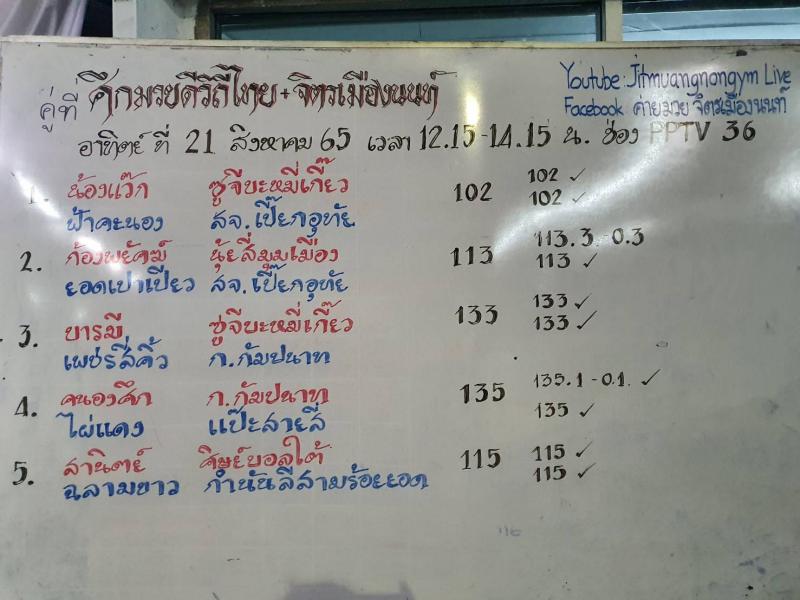 ศึกมวยดีวิถีไทย+จิตรเมืองนนท์
Youtube: Jitmuangnongym Live
คู่ที่
Facebook: ค่ายมวย จิตรเมืองนนท์
อาทิตย์ ที่ 21 สิงหาคม 65 เวลา 12.15-14.15 น. ช่อง PPTV 36
1. น้องแว๊ก ซูจีบะหมี่เกี๊ยว 102 102 ✓
ฟ้าคะนอง สจ.เปี๊ยกอุทัย 102 ✓
2. ก้องพยัคฆ์ นุ้ยสี่มุมเมือง 113 113.3 -0.3
ยอดเปาเปียว สจ.เปี๊ยกอุทัย 113 ✓
3. บารมี ซูจีบะหมี่เกี๊ยว 133 133 ✓
เพชรสี่คิ้ว ก.กัมปนาท 133 ✓
4. คนองศึก ก.กัมปนาท 135 135.1 -0.1. ✓
ไผ่แดง แป๊ะสายสี่ 135 ✓
5. สานิตย์ ศิษย์บอลใต้ 115 115 ✓
ฉลามขาว กำนันลีสามร้อยยอด 115 ✓